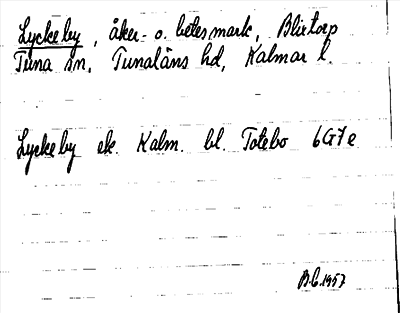 Lyckeby, åker- o. betesmark, Blixtorp
Tuna sn, Tunaläns hd, Kalmar l.
Lyckeby ek. Kalm. bl. Totebo 6G7e
B.G. 1957